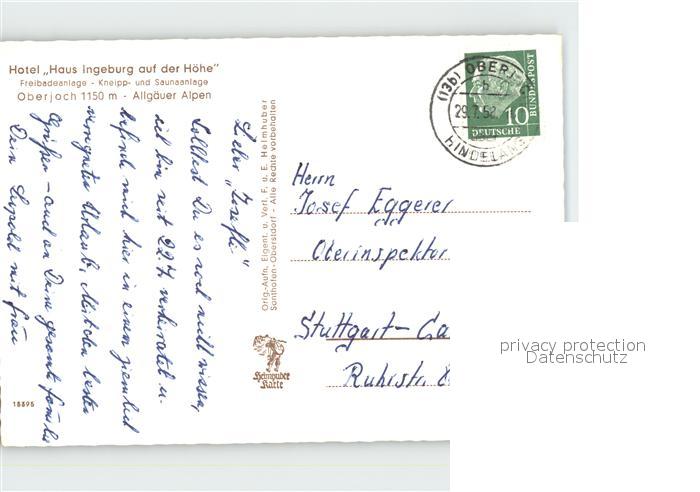 Hotel „Haus Ingeburg auf der Höhe"
Freibadeanlage - Kneipp- und Saunaanlage
Oberjoch 1150 m - Allgäuer Alpen
Lieber „Josefle"
Solltest Du es noch nicht wissen,
ich bin seit 22.7 verheiratet u.
befinde mich hier in einem ziemlich
verregneten Urlaub. Mit den besten
Grüßen – auch an Deine gesamte Familie
Dein Lupold mit Frau
Orig.-Aufn. Eigent. u. Verl. F. u. E. Heimhuber
Sonthofen-Oberstdorf - Alle Rechte vorbehalten
Heimhuber
Karte
18895
(13b) OBERJ
29.7.
HINDELANG
10
DEUTSCHE
BUNDESPOST
Herrn
Josef Eggerer
Oberinspektor
Stuttgart- Ca
Ruhrstr. 8
privacy protection
Datenschutz